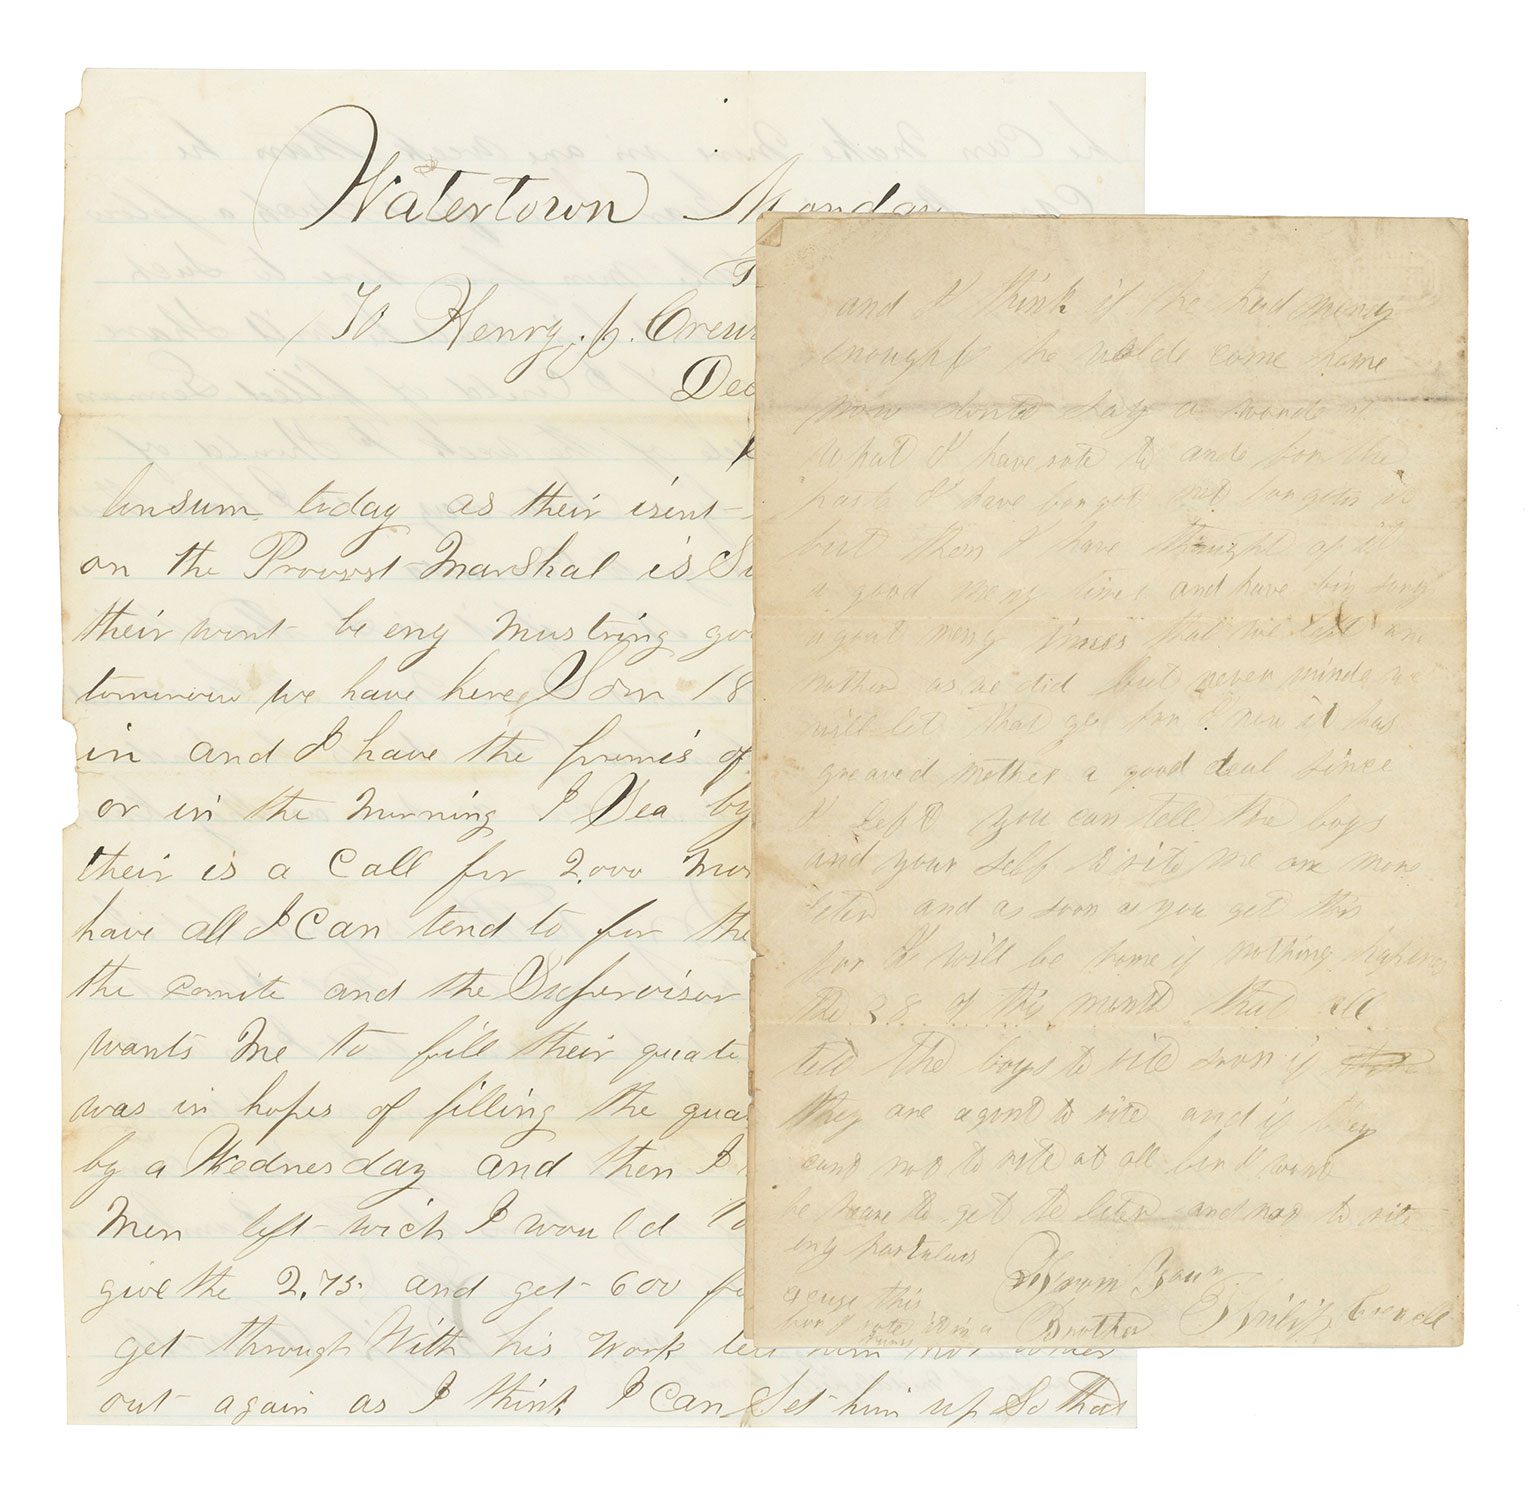 Watertown Monday
To Henry. J. Creu
Dec
Consum today as their isent
on the Provost Marshal is Si
their wont be eny mustring go
tomorrow we have here Som 18
in and I have the promis of
or in the Morning I Sea by
their is a Call for 2,000 Mor
have all I Can tend to for the
the comite and the Supervisor
wants Me to fill their quate
was in hopes of filling the qua
by a Wednesday and then I
Men left wich I would
give the 2.75 and get 600 fo
get through With his work tell him not
out again as I think I Can Set him up So that
and I think if he had mony
enought he wolde come home
now dont say a worde
what I have rote to and for the
past I have forgot and
but then I have thought of it
a good meny times and have bin sory
a grat meny times that we
as we did but never minde we
will let that go for I now it has
greaved mother a good deal since
I left you can tell the boys
and your self to rite me one more
leter and as soon as you get this
for I will be home if nothing hapens
the 28 of this month that all
tell the boys to rite soon if
they are agoint to rite and if they
not to rite at all for I want
be shure to get the leter and not to rite
eny
From Your
Brother Philip Crendell